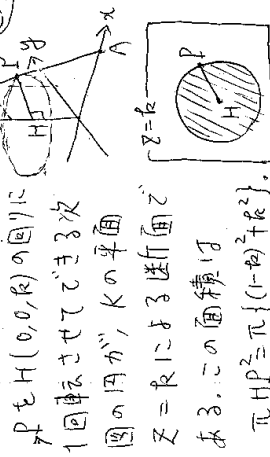 PをH(0,0,k)の回りに
1回転させてできる次
図の円が、Kの平面
z=kによる断面で
ある。この面積は
πHP²=π{(1-k)²+k²}.
P
y
H
x
A
z=k
P
H